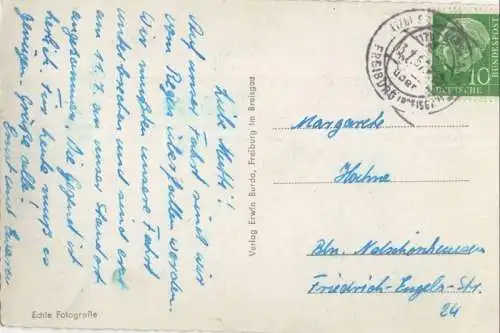 Liebe Mutti!
Auf unserer Fahrt sind wir
vom Regen überfallen worden.
Wir mußten unsere Fahrt
unterbrechen und sind erst
am 12.7. an unser Standort
angekommen. Die Gegend ist
herrlich. Für heute muß es
genügen. Grüße alle!
Ernst und
Echte Fotografie
Verlag Erwin Burda, Freiburg im Breisgau
FREIBURG
DEUTSCHE
BUNDESPOST
10
Margarete
Bln. Niederschönhausen
Friedrich-Engels-Str.
24